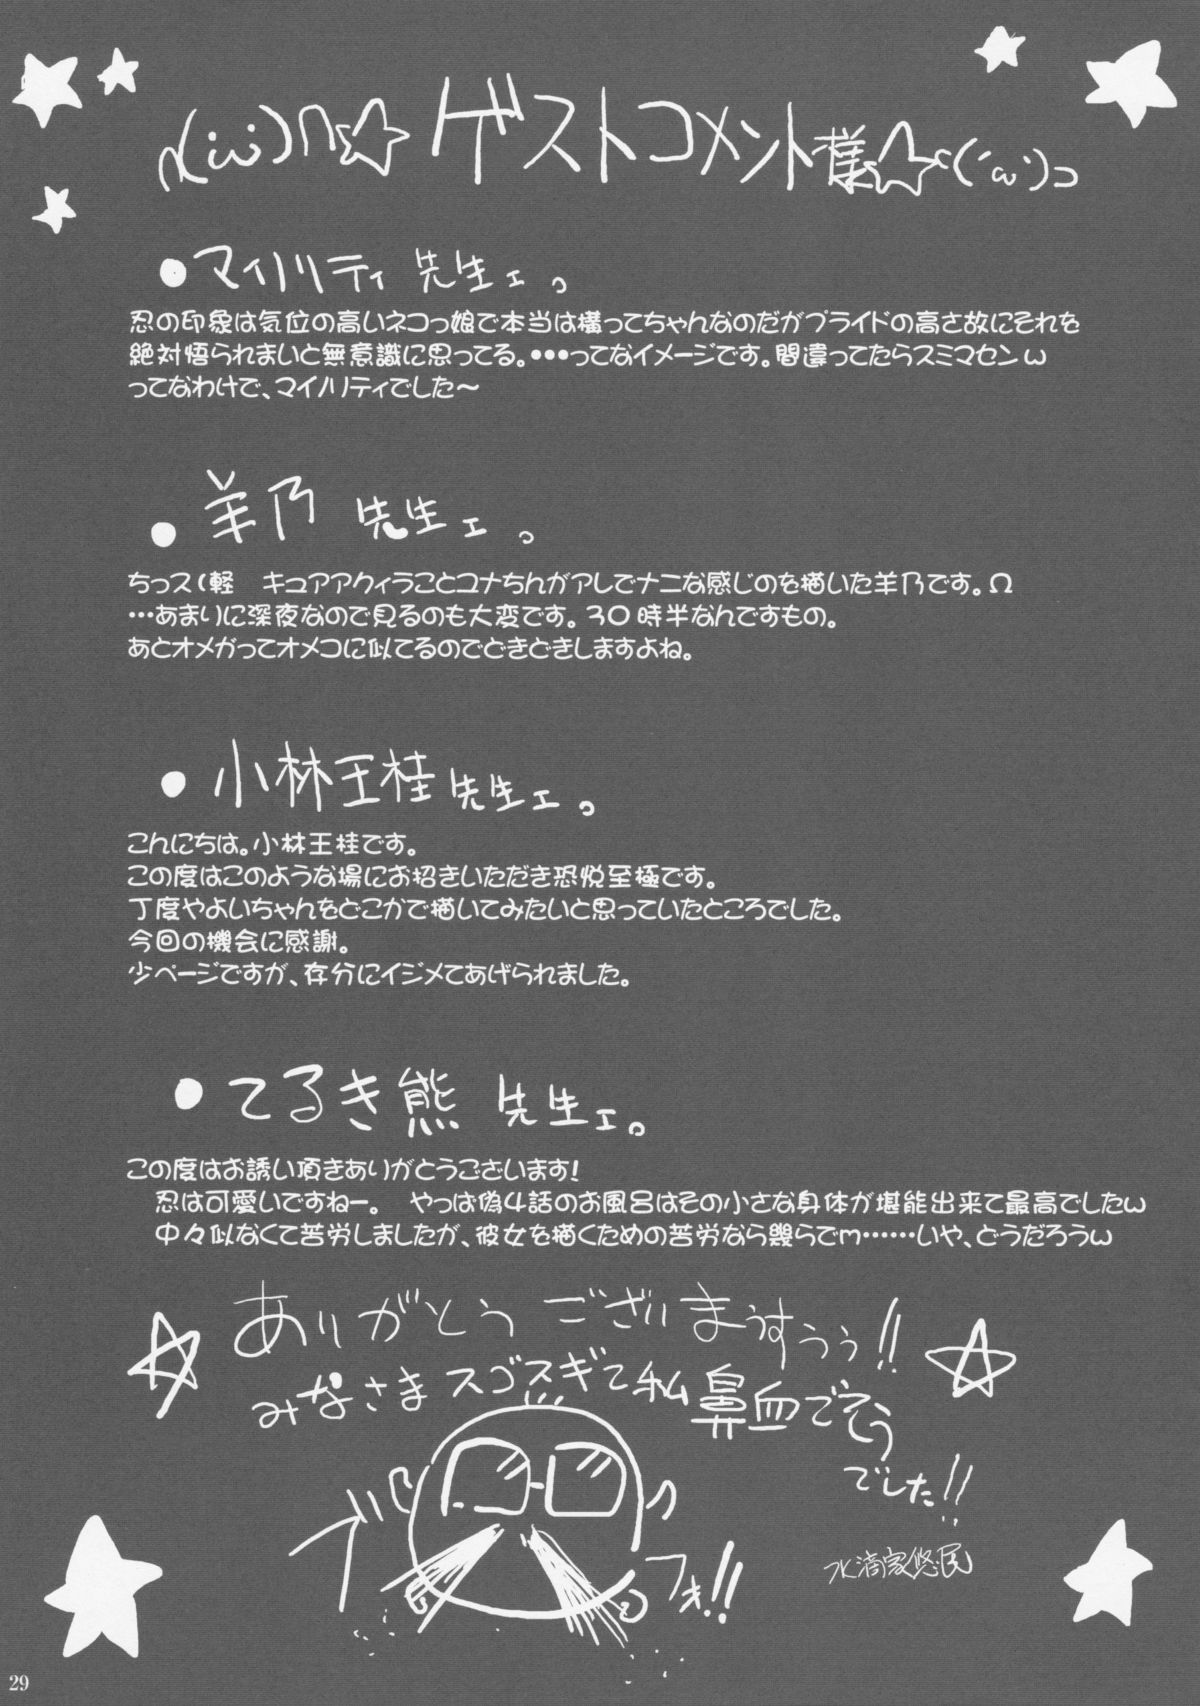 ∩(・ω・)∩☆ ゲストコメント様☆⊂(´ω`)⊃
●マイノリティ 先生ェっ
忍の印象は気位の高いネコっ娘で本当は構ってちゃんなのだがプライドの高さ故にそれを
絶対悟られまいと無意識に思ってる。・・・ってなイメージです。間違ってたらスミマセンω
ってなわけで、マイノリティでした～
●羊乃 先生ェっ
ちっス(軽　キュアアクィラことユナちんがアレでナニな感じのを描いた羊乃です。Ω
…あまりに深夜なので見るのも大変です。30時半なんですもの。
あとオメガってオメコに似てるのでどきどきしますよね。
●小林王桂 先生ェっ
こんにちは。小林王桂です。
この度はこのような場にお招きいただき恐悦至極です。
丁度やよいちゃんをどこかで描いてみたいと思っていたところでした。
今回の機会に感謝。
少ページですが、存分にイジメてあげられました。
●てるき熊 先生ェ。
この度はお誘い頂きありがとうございます！
忍は可愛いですねー。　やっぱ偽4話のお風呂はその小さな身体が堪能出来て最高でしたω
中々似なくて苦労しましたが、彼女を描くための苦労なら幾らでm……いや、どうだろうω
ありがとうございまぅすぅぅ!!
みなさまスゴスギて私鼻血でそう
でした!!
ブ フォ!!
水滴家悠民
29